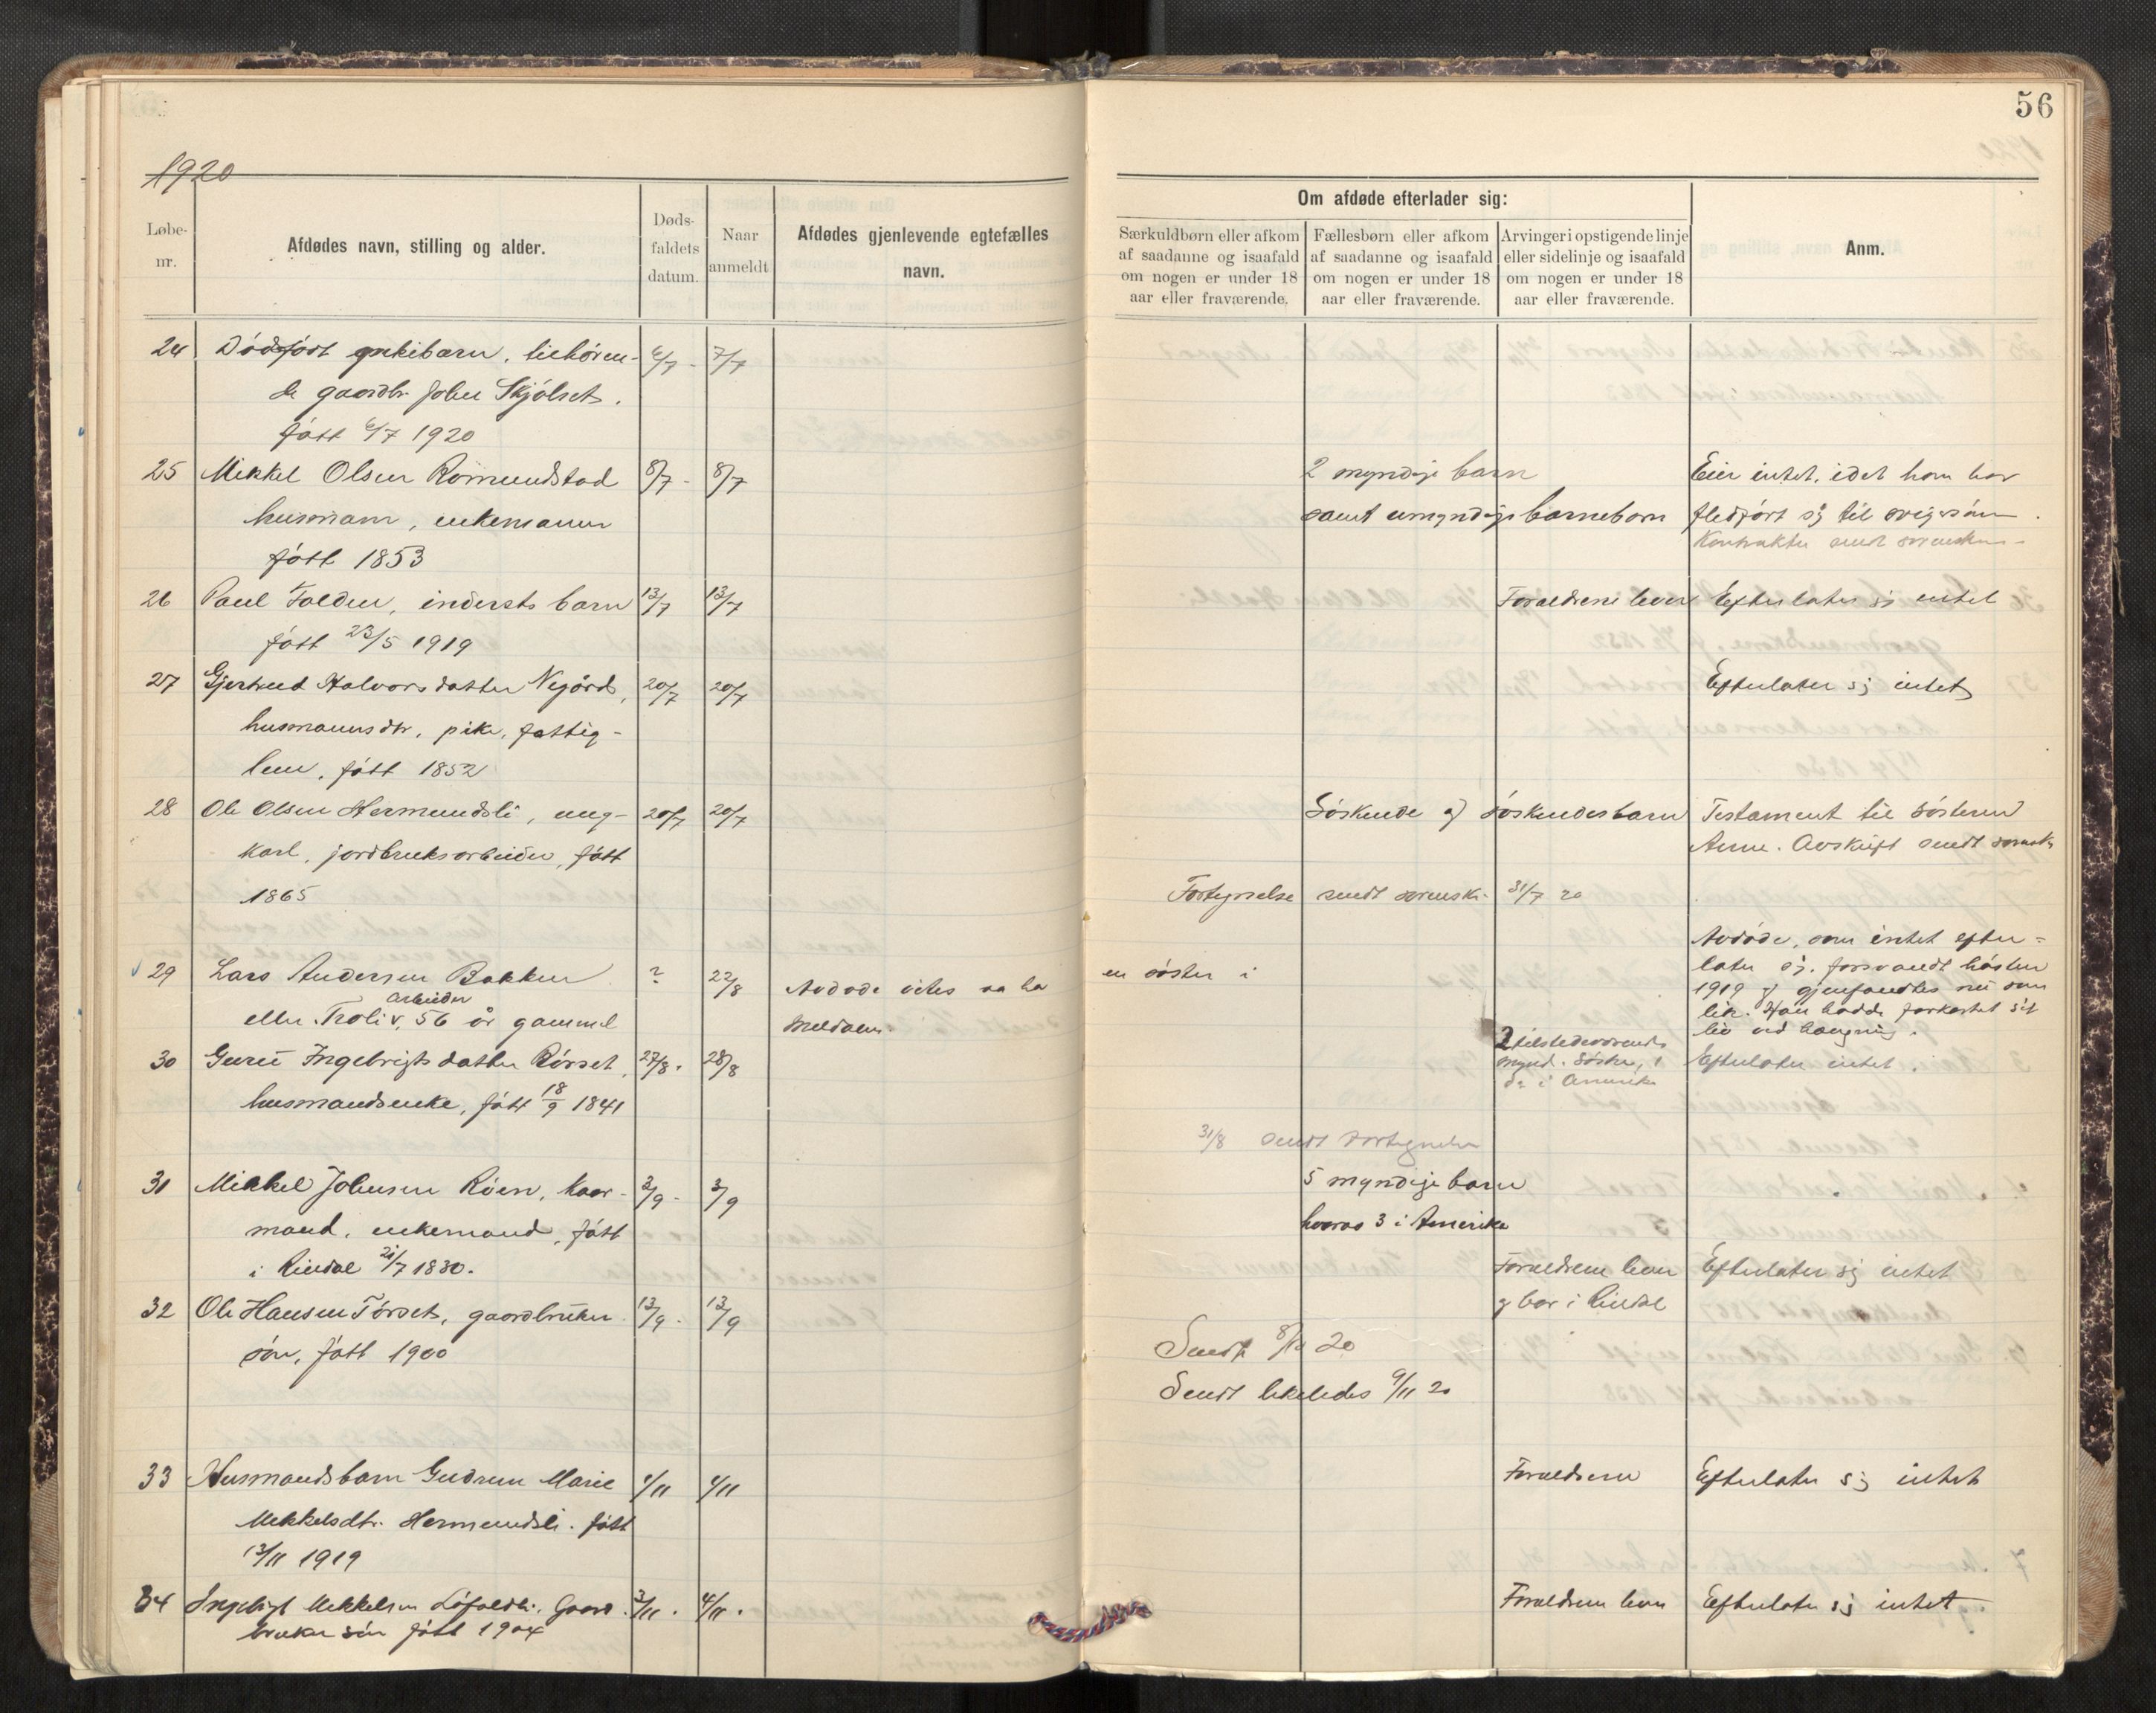 56
1920
Løbe-
nr.
Afdødes navn, stilling og alder.
Døds-
faldets
datum.
Naar
anmeldt
Afdødes gjenlevende egtefælles
navn.
Om afdøde efterlader sig:
Særkuldbørn eller afkom
af saadanne og isaafald
om nogen er under 18
aar eller fraværende.
Fællesbørn eller afkom
af saadanne og isaafald
om nogen er under 18
aar eller fraværende.
Arvinger i opstigende linje
eller sidelinje og isaafald
om nogen er under 18
aar eller fraværende.
Anm.
24 Dødsfødt pikebarn, tilhøren- 6/7 - 7/7
de gaardbr. John Skjølset.
født 6/7 1920
25 Mikkel Olsen Romundstad 8/7 - 8/7 2 myndige barn Eier intet, idet han har
husmann, enkemann samt umyndige barnebarn fledført sig til svigersønn.
født 1853 Kontrakten sendt
26 Paul Folden, inderts barn 13/7 13/7 Foraeldrene lever Efterlater sig intet
født 23/5 1919
27 Gjertrud Halvorsdatter Nygård, 20/7 20/7 Efterlater sig intet
husmannsdtr, pike, fattig-
lem, født 1852
28 Ole Olsen Hermundsli, ung- 20/7 20/7 Søskende og søskendesbarn Testament til søsteren
karl, jordbruksarbeider, født Anne. Avskrift sendt
1865 Fortegnelse sendt sorensk. 31/7 20
29 Lars Andersen Bakken ? 22/8 Avdøde vites aa ha en søster i Avdøde, som intet efter-
arbeider
eller Troliv, 56 år gammel Meldalen. later sig, forsvandt høsten
1919 og gjenfandtes nu som
lik. Han hadde forkortet sit
liv ved hængning.
30 Guru Ingebrigtsdatter Rørset, 27/8. 28/8 2 tilstedeværende
husmandsenke, født 18/9 1841 mynd. søstre, 1 Efterlater intet.
do i Amerika
31/8 sendt fortegnelse
31 Mikkel Johnsen Røen, kaar- 2/9 - 3/9 5 myndige barn
mand, enkemand, født hvorav 3 i Amerika
i Rindal 21/7 1830.
32 Ole Hansen Tørset, gaardbruker 13/9 - 13/9 Foraeldrene lever Efterlater sig intet
søn, født 1900 og bor i Rindal
Sendt 8/10 20
Sendt likeledes 9/11 20
33 Husmandsbarn Gudrun Marie 1/11 4/11 Foraeldrene Efterlater sig intet
Mikkelsdtr. Hermundsli. født
13/11 1919
34 Ingebrigt Mikkelsen Løfaldli. Gaard- 3/11. 4/11. Foraeldrene lever Efterlater sig intet
bruker søn født 1904